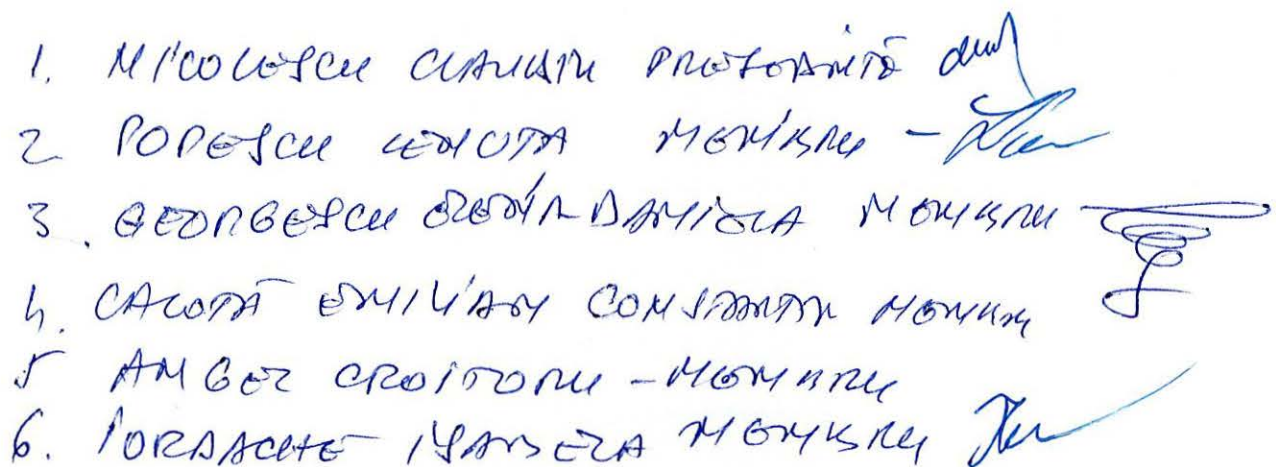 1. NICOLESCU CLAUDIU PREȘEDINTĂ
2 POPESCU LENUTA MEMBRU -
3. GEORGESCU DANIELA MEMBRU
4. CALOTĂ EMILIAN CONSTANTIN MEMBRU
5 ANGEL CROITORU - MEMBRU
6. IORDACHE ISABELA MEMBRU